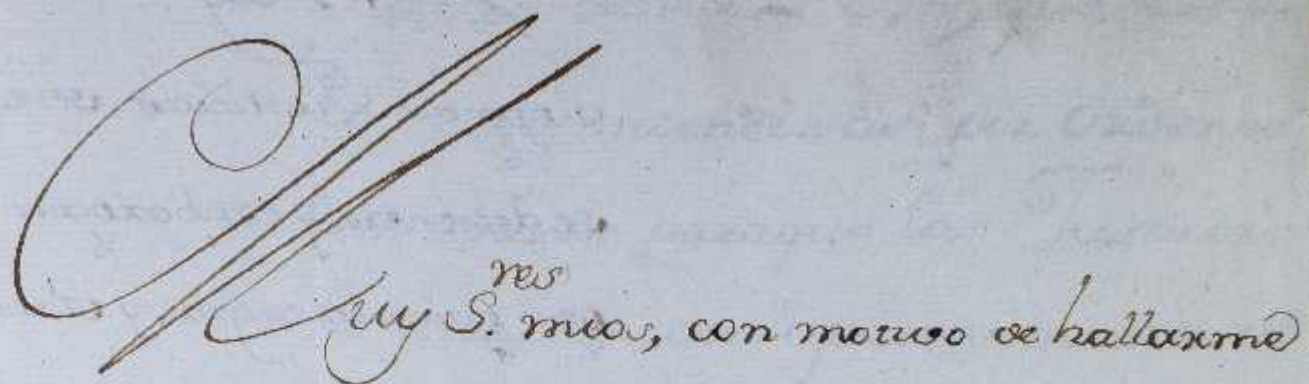 Muy S.res mios, con motivo de hallarme